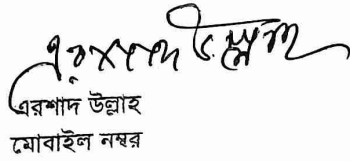 এরশাদ উল্লাহ
এরশাদ উল্লাহ
মোবাইল নম্বর